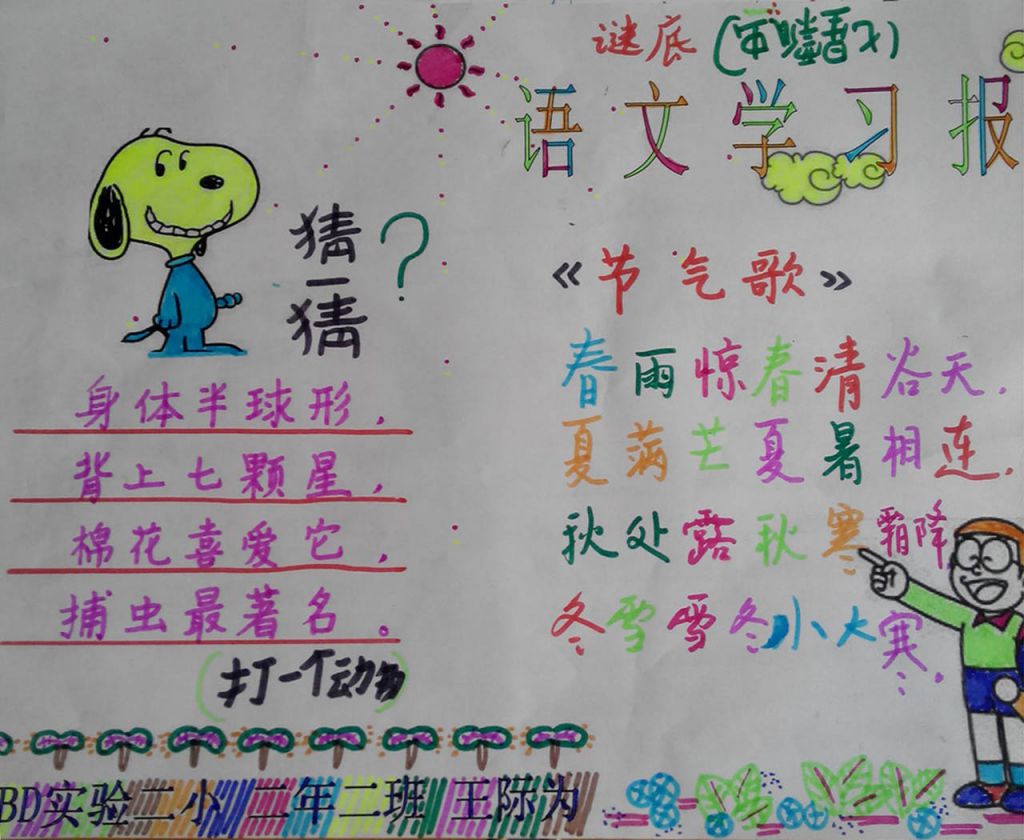 谜底(七星瓢虫)
语文学习报
猜一猜?
身体半球形,
背上七颗星,
棉花喜爱它,
捕虫最著名。
(打一个动物)
《节气歌》
春雨惊春清谷天.
夏满芒夏暑相连.
秋处露秋寒霜降
冬雪雪冬小大寒.
BD实验二小 二年二班 王际为